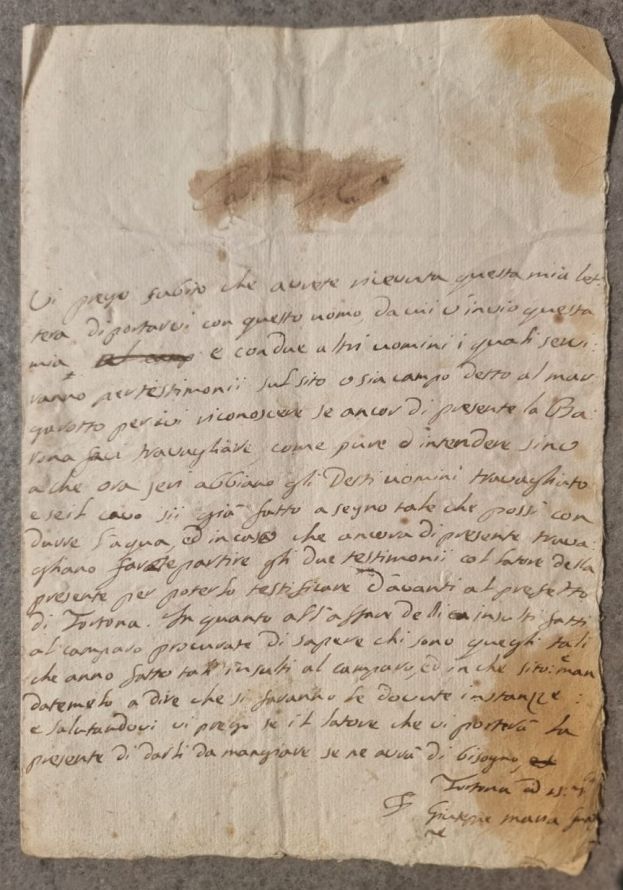 Vi prego subito che avrete ricevuta questa mia let:
tera di portarvi con questo uomo, da cui v'invio questa
mia e con due altri uomini i quali servi:
ranno per testimonii sul sito o sia campo detto al mar
garotto per ivi riconoscere se ancor di presente la Ba:
rona facci travagliare come pure d'intendere sino
a che ora jeri abbiano gli detti uomini travagliato
e se il cavo sii già fatto a segno tale che possi con
durre l'aqua, ed in caso che ancora di presente trava:
gliano farete partire gli due testimonii col latore della
presente per poterlo testificare d'avanti al prefetto
di Tortona. In quanto all'affare delli insulti fatti
al camparo procurate di sapere chi sono quegli tali
che anno fatto tali insulti al camparo, ed in che sito: man
datemelo a dire che si faranno le dovute instanze:
e salutandovi vi prego se il latore che vi porterà la
presente di darli da mangiare se ne avrà di bisogno,
Tortona
Giuseppe Maria